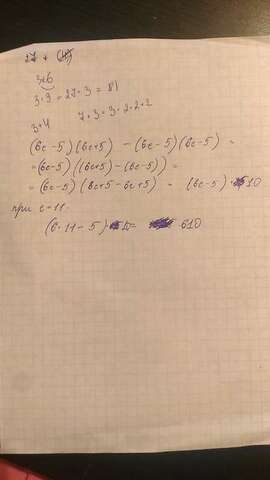 27 +
3 * 3 = 27 * 3 = 81
3 * 4 7 * 3 = 3 * 2 * 2 * 2
(6c - 5)(6c + 5) - (6c - 5)(6c - 5) =
= (6c - 5)((6c + 5) - (6c - 5)) =
= (6c - 5)(6c + 5 - 6c + 5) = (6c - 5) * 10
при c = 11
(6 * 11 - 5) * 10 = 610